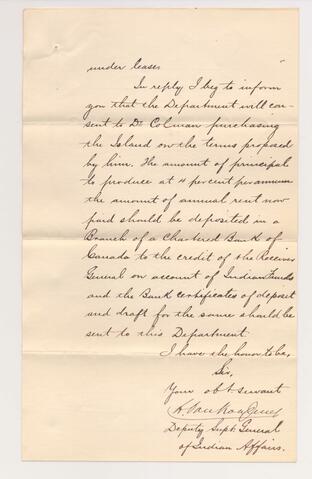 under lease.
In reply I beg to inform
you that the Department will con-
sent to Dr Colman purchasing
the Island on the terms proposed
by him. The amount of principal
to produce at 4 percent per annum
the amount of annual rent now
paid should be deposited in a
Branch of a Chartered Bank of
Canada to the credit of the Receiver
General on account of Indian Funds
and the Bank certificates of deposit
and draft for the same should be
sent to this Department.
I have the honor to be,
Sir,
Your obt. servant
Deputy Supt. General
of Indian Affairs.